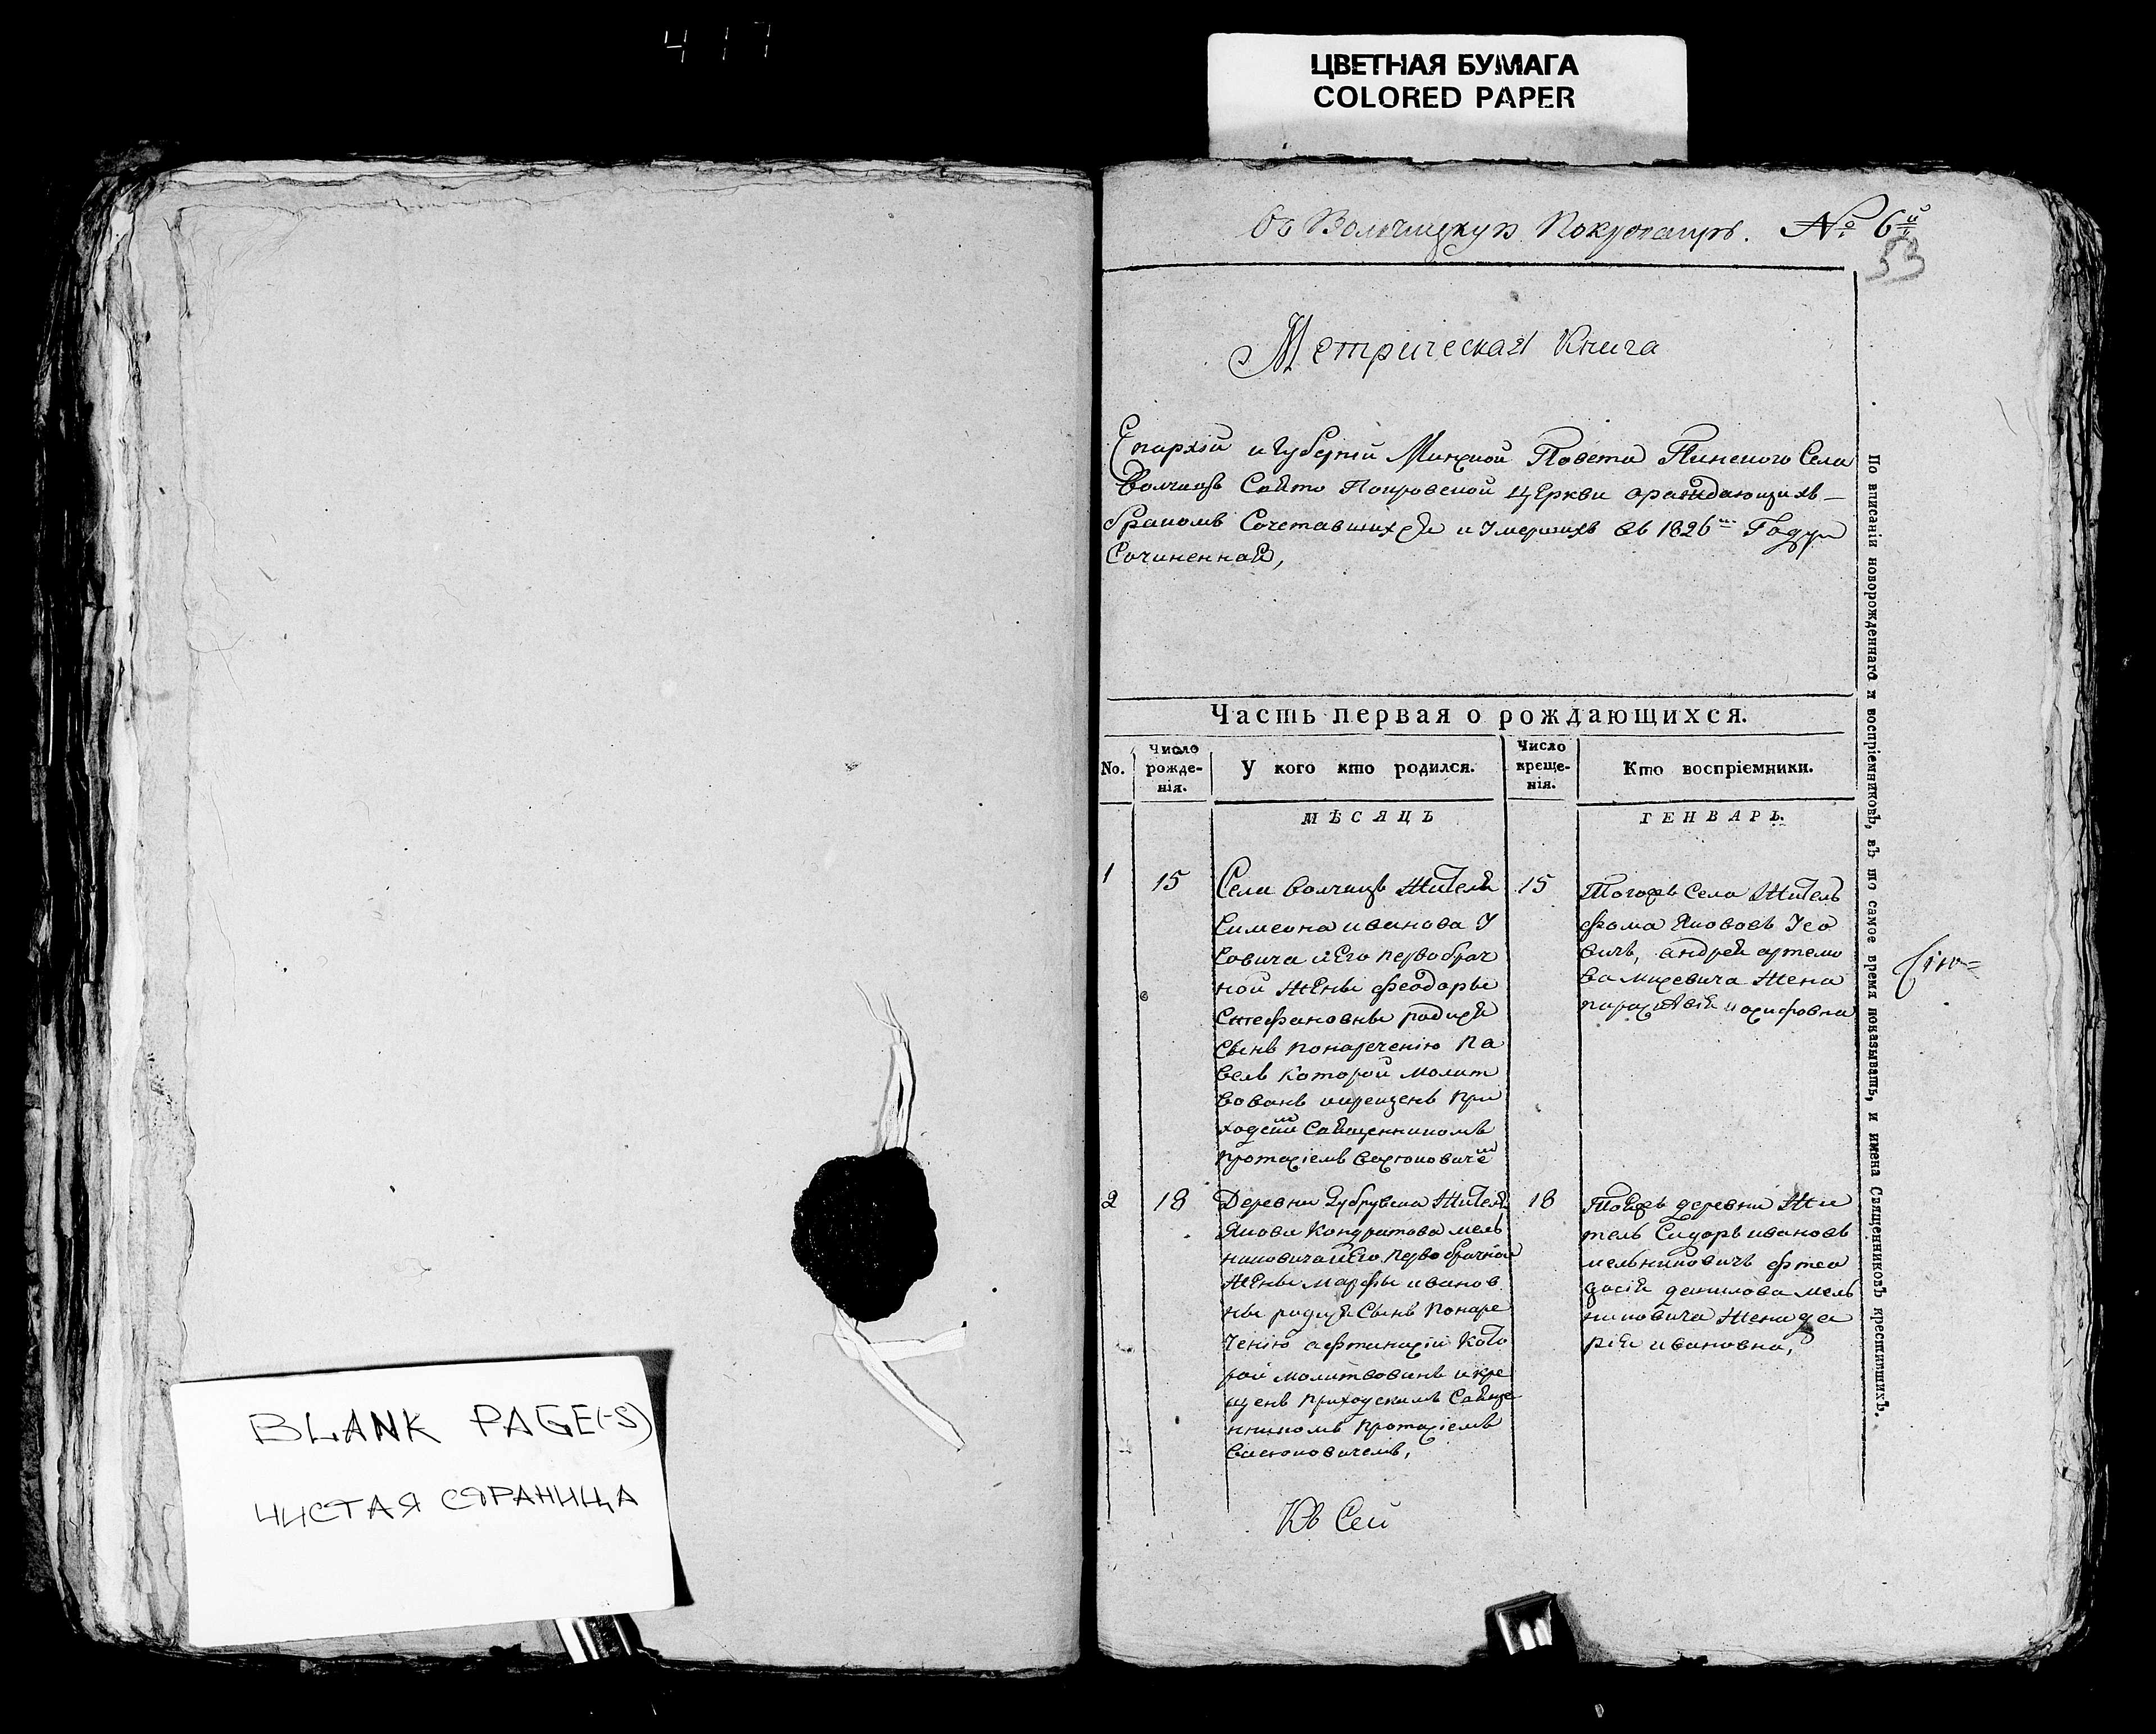 417
ЦВЕТНАЯ БУМАГА
COLORED PAPER
№ 6й
53
Метрическая Книга
Епархіи и Губерніи Минской Повета Пинского Села
Волчицъ Свято Покровской церкви ораждающихъ
бракомъ Сочетавшихся и Умершихъ въ 1826м Году
Сочиненная,
Часть первая о рождающихся.
No.
Число рожде-нія.
У кого кто родился.
Число креще-нія.
Кто воспріемники.
МѢСЯЦЪ
ГЕНВАРЬ.
1
15
Села Волчицъ Жителя
Симеона иванова
совича иЕго первобрач
ной Жены феодоры
Стефановны родися
Сынъ понаречению Па
велъ которой молит
вованъ икрещенъ При
ходскимъ Священникомъ
Протасіемъ Васюковичемъ
15
Тогожъ Села Житель
фома Яковъ
вичъ, андрея артемо
ва Жена
2
18
Деревни Жителя
Якова Кондратова мель
никовича иЕго первобрачной
Жены марфы иванов
ны родися Сынъ Понаре
ченію афанасій Кото
рой молитвованъ икре
щенъ приходскимъ Свяще
нникомъ Протасіемъ
Васюковичемъ,
18
Тояжъ деревни Жи
тель Сидоръ ивановъ
мельниковичъ
данилова мель
никовича Жена да
рія ивановна,
Къ Сей
По вписаніи новорожденнаго и воспріемниковъ, въ то самое время показывать, и имена Священниковъ крестившихъ.
BLANK PAGE(-S)
ЧИСТАЯ СТРАНИЦА